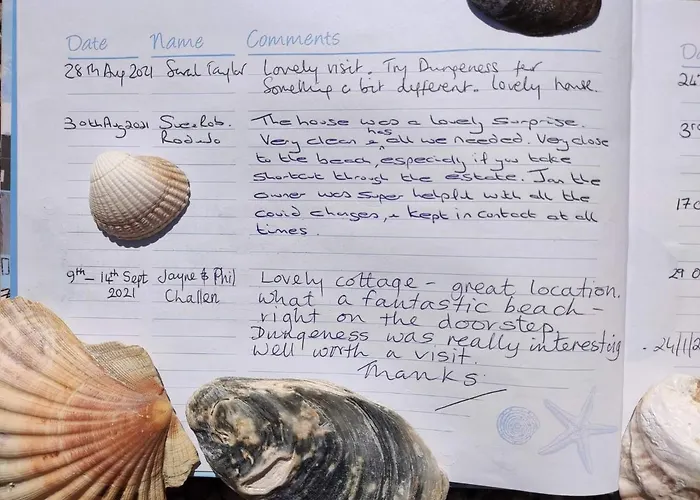 Date Name Comments
28th Aug 2021 Sarah Taylor Lovely visit. Try Dungeness for
Something a bit different. Lovely house.
30th Aug 2021 Sue & Rob. The house was a lovely surprise.
Very clean & has all we needed. Very close
to the beach, especially if you take
shortcut through the estate. Jan the
owner was super helpful with all the
covid changes, & kept in contact at all
times.
9th - 14th Sept Jayne & Phil Lovely cottage - great location.
2021 Challen What a fantastic beach -
right on the doorstep.
Dungeness was really interesting
Well worth a visit.
Thanks
24
17
29
24/1/2